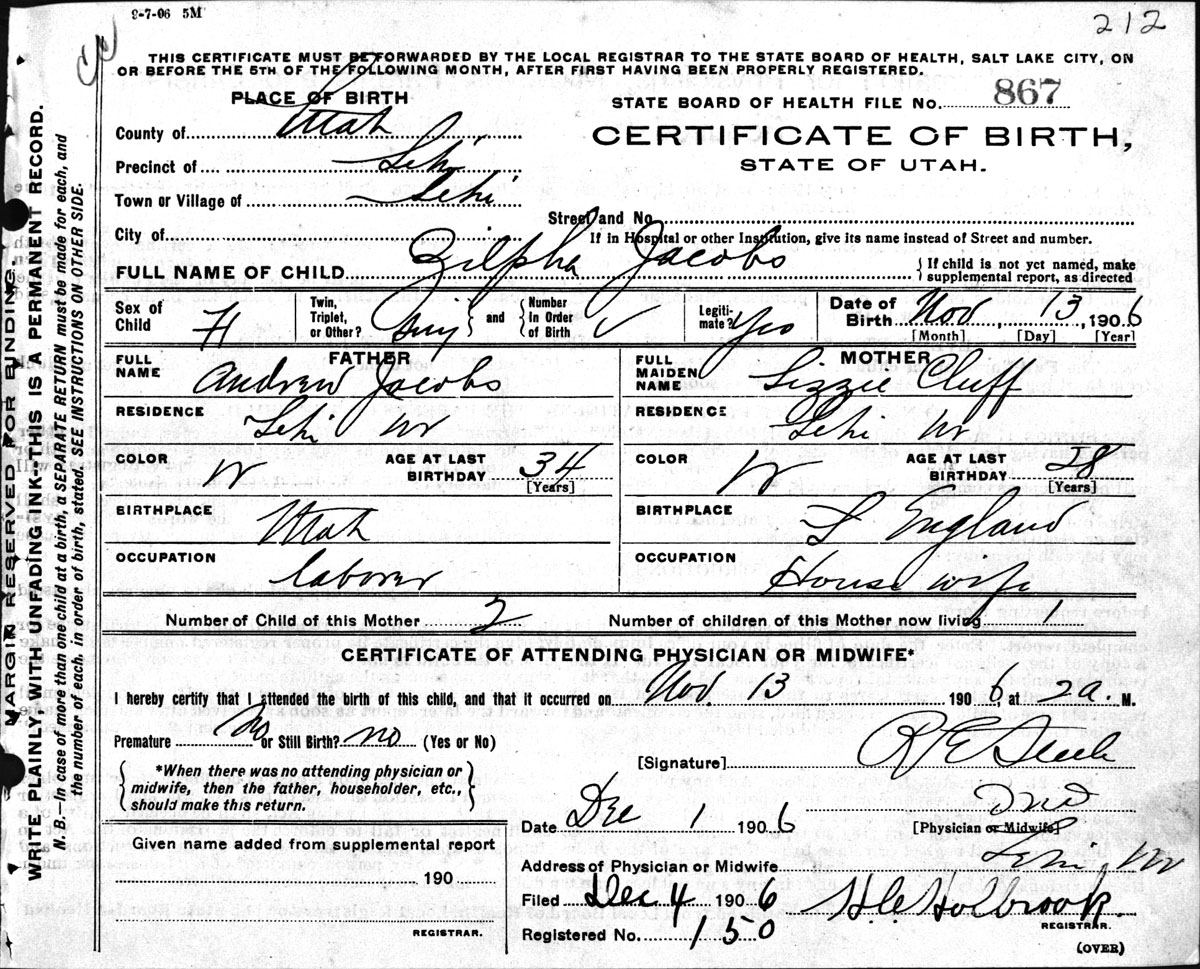 9-7-06 5M
212
THIS CERTIFICATE MUST BE FORWARDED BY THE LOCAL REGISTRAR TO THE STATE BOARD OF HEALTH, SALT LAKE CITY, ON
OR BEFORE THE 5TH OF THE FOLLOWING MONTH, AFTER FIRST HAVING BEEN PROPERLY REGISTERED.
PLACE OF BIRTH
STATE BOARD OF HEALTH FILE No. 867
County of Utah
CERTIFICATE OF BIRTH,
STATE OF UTAH.
Precinct of Lehi
Town or Village of Lehi
Street and No.
City of
If in Hospital or other Institution, give its name instead of Street and number.
FULL NAME OF CHILD Zilpha Jacobs { If child is not yet named, make
supplemental report, as directed
Sex of Child Twin, Triplet, or Other? } and { Number In Order of Birth Legiti- mate? Yes Date of Birth Nov 13, 1906
[Month] [Day] [Year]
FATHER
FULL NAME Andrew Jacobs
RESIDENCE Lehi
COLOR W AGE AT LAST BIRTHDAY 34
[Years]
BIRTHPLACE Utah
OCCUPATION laborer
MOTHER
FULL MAIDEN NAME Lizzie Cluff
RESIDENCE Lehi
COLOR W AGE AT LAST BIRTHDAY 28
[Years]
BIRTHPLACE England
OCCUPATION House wife
Number of Child of this Mother 2 Number of children of this Mother now living 1
CERTIFICATE OF ATTENDING PHYSICIAN OR MIDWIFE*
I hereby certify that I attended the birth of this child, and that it occurred on Nov. 13 1906, at 2a. M.
Premature No or Still Birth? no (Yes or No)
[Signature] R E Steele
{ *When there was no attending physician or
midwife, then the father, householder, etc.,
should make this return. }
Date Dec 1 1906
[Physician or Midwife]
Given name added from supplemental report
190
REGISTRAR.
Address of Physician or Midwife Lehi,
Filed Dec 4 1906 H.C. Holbrook.
REGISTRAR.
Registered No. 150
(OVER)
MARGIN RESERVED FOR BINDING.
WRITE PLAINLY, WITH UNFADING INK—THIS IS A PERMANENT RECORD.
N. B.—In case of more than one child at a birth, a SEPARATE RETURN must be made for each, and
the number of each, in order of birth, stated. SEE INSTRUCTIONS ON OTHER SIDE.